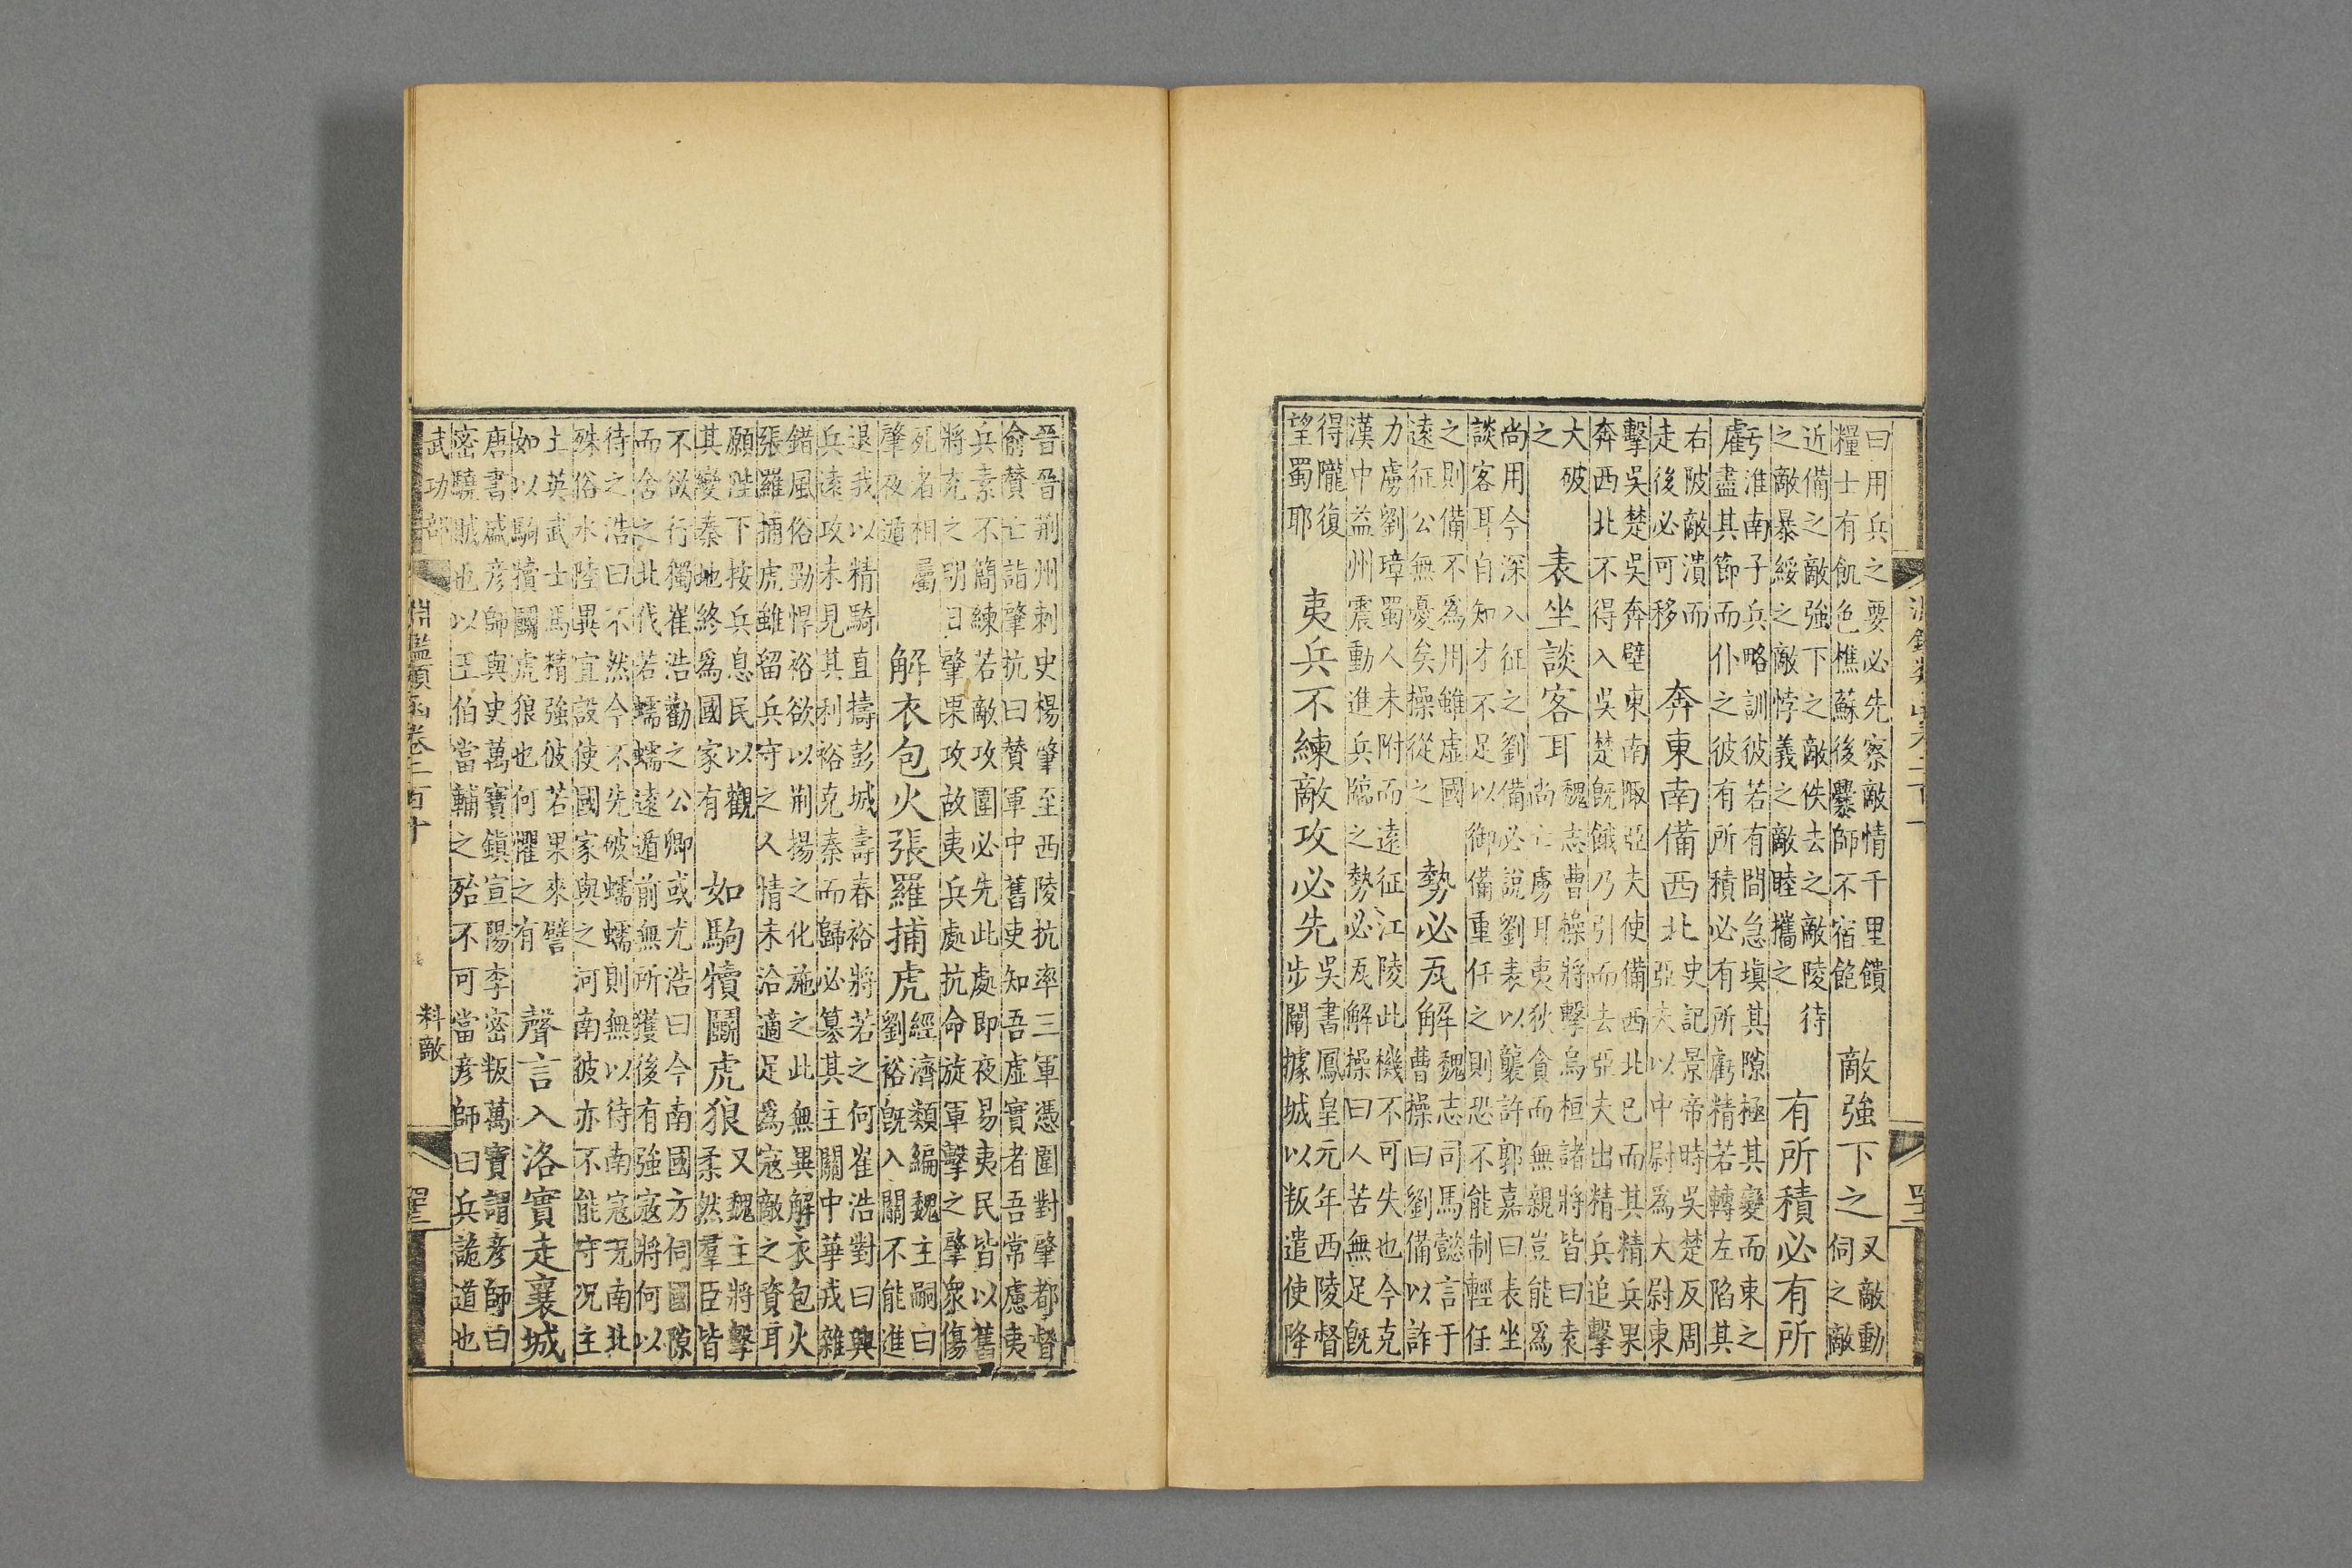 曰用兵之要必先察敵情千里饋
糧士有飢色樵蘇後爨師不宿飽
敵強下之
又敵動
伺之敵
近備之敵強下之敵佚去之敵陵待
之敵暴綏之敵悖義之敵睦攜之
有所積必有所
虧
淮南子兵略訓彼若有間急填其隙極其變而東之
盡其節而仆之彼有所積必有所虧精若轉左陷其
右陂敵潰而
走後必可移
奔東南備西北
史記景帝時吳楚反周
亞夫以中尉爲大尉東
擊吳楚吳奔壁東南陬亞夫使備西北已而其精兵果
奔西北不得入吳楚既餓乃引而去亞夫出精兵追擊
大破
之
表坐談客耳
魏志曹操將擊烏桓諸將皆曰袁
尚亡虜耳夷狄貪而無親豈能爲
尚用今深入征之劉備必說劉表以襲許郭嘉曰表坐
談客耳自知才不足以御備重任之則恐不能制輕任
之則備不爲用雖虛國
遠征公無憂矣操從之
勢必瓦解
魏志司馬懿言于
曹操曰劉備以詐
力虜劉璋蜀人未附而遠征江陵此機不可失也今克
漢中益州震動進兵臨之勢必瓦解操曰人苦無足既
得隴復
望蜀耶
夷兵不練敵攻必先
吳書鳳皇元年西陵督
步闡據城以叛遣使降
晉晉荊州刺史楊肇至西陵抗率三軍憑圍對肇都督
俞贊亡詣肇抗曰贊軍中舊吏知吾虛實者吾常慮夷
兵素不簡練若敵攻圍必先此處即夜易夷民皆以舊
將充之明日肇果攻故夷兵處抗命旋軍擊之肇衆傷
死者相屬
肇夜遁
解衣包火張羅捕虎
經濟類編魏主嗣曰
劉裕既入關不能進
退我以精騎直擣彭城壽春裕將若之何崔浩對曰興
兵遠攻未見其利裕克秦而歸必篡其主關中華戎雜
錯風俗勁悍裕欲以荊揚之化施之此無異解衣包火
張羅捕虎雖留兵守之人情未洽適足爲寇敵之資耳
願陛下按兵息民以觀
其變秦地終爲國家有
如駒犢鬬虎狼
又魏主將擊
柔然羣臣皆
不欲行獨崔浩勸之公卿或尤浩曰今南國方伺國隙
而舍之北伐若蠕蠕遠遁前無所獲後有強寇將何以
待之浩曰不然今不先破蠕蠕則無以待南寇況南北
殊俗水陸異宜設使國家與之河南彼亦不能守況主
土英武士馬精強彼若果來譬
如以駒犢鬬虎狼也何懼之有
聲言入洛實走襄城
唐書盛彥師與史萬寶鎮宣陽李密叛萬寶謂彥師曰
密驍賊也以王伯當輔之殆不可當彥師曰兵詭道也
武功部
淵鑑類函卷二百十
料敵